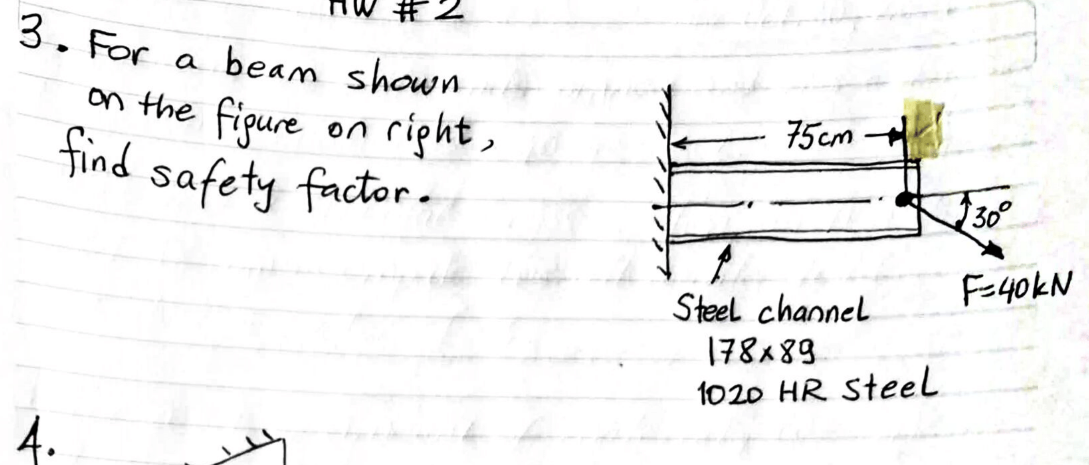 HW #2
3. For a beam shown
on the figure on right,
find safety factor.
75cm
30°
F=40kN
Steel channel
178x89
1020 HR Steel
4.